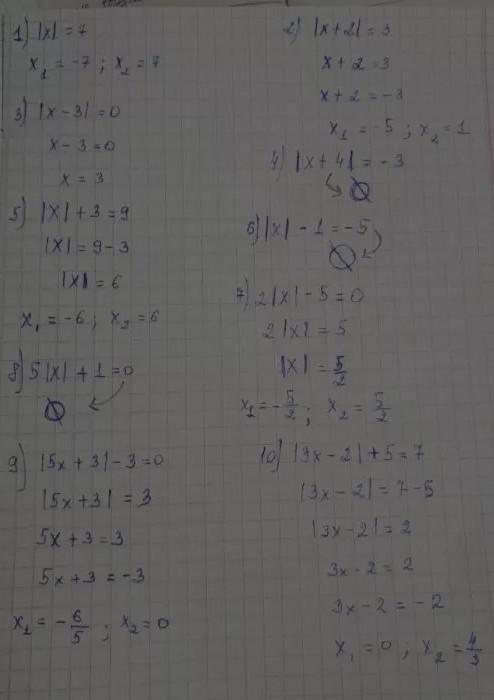 1) |x| = 7
x₁ = -7 ; x₂ = 7
2) |x+2| = 3
x + 2 = 3
x + 2 = -3
x₁ = -5 ; x₂ = 1
3) |x - 3| = 0
x - 3 = 0
x = 3
4) |x + 4| = -3
∅
5) |x| + 3 = 9
|x| = 9 - 3
|x| = 6
x₁ = -6 ; x₂ = 6
6) |x| - 1 = -5
∅
7) 2|x| - 5 = 0
2|x| = 5
|x| = 5/2
x₁ = -5/2 ; x₂ = 5/2
8) 5|x| + 1 = 0
∅
9) |5x + 3| - 3 = 0
|5x + 3| = 3
5x + 3 = 3
5x + 3 = -3
x₁ = -6/5 ; x₂ = 0
10) |3x - 2| + 5 = 7
|3x - 2| = 7 - 5
|3x - 2| = 2
3x - 2 = 2
3x - 2 = -2
x₁ = 0 ; x₂ = 4/3